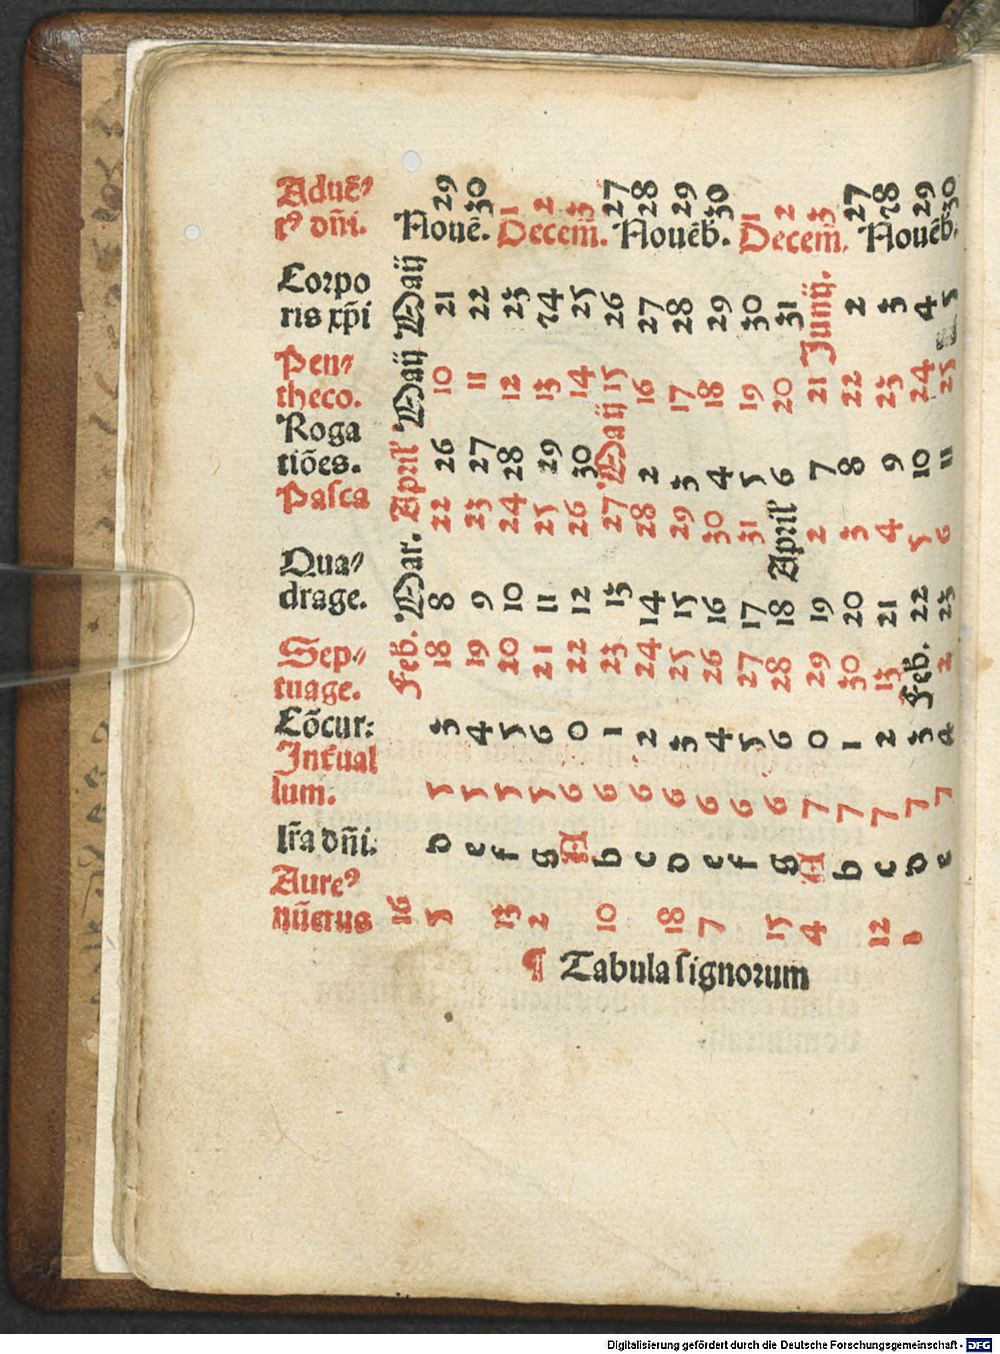 Aduē⸗ 29 30 1 2 3 27 28 29 30 1 2 3 27 28 29 30
tꝰ dn̄i. Nouē. Decem̄. Nouēb. Decem̄. Nouēb.
Corpo
ris xp̄i Maij 21 22 23 24 25 26 27 28 29 30 31 Junij. 2 3 4 5
Pen⸗
theco. Maij 10 11 12 13 14 15 16 17 18 19 20 21 22 23 24 25
Roga
tiões. April 26 27 28 29 30 Maij 2 3 4 5 6 7 8 9 10 11
Pasca Mar. 22 23 24 25 26 27 28 29 30 31 April 2 3 4 5 6
Qua⸗
drage. Feb. 8 9 10 11 12 13 14 15 16 17 18 19 20 21 22 23
Sep⸗
tuage. 18 19 20 21 22 23 24 25 26 27 28 29 30 Feb. 2
Cōcur: 3 4 5 6 0 1 2 3 4 5 6 0 1 2 3 4
Int̄ual
lum. 5 5 5 5 6 6 6 6 6 6 6 7 7 7 7 7
lr̄a dn̄i: d e f g A b c d e f g A b c d e
Aureꝰ
nūerus 16 5 13 2 10 18 7 15 4 12 1
¶ Tabula signorum
Digitalisierung gefördert durch die Deutsche Forschungsgemeinschaft - DFG